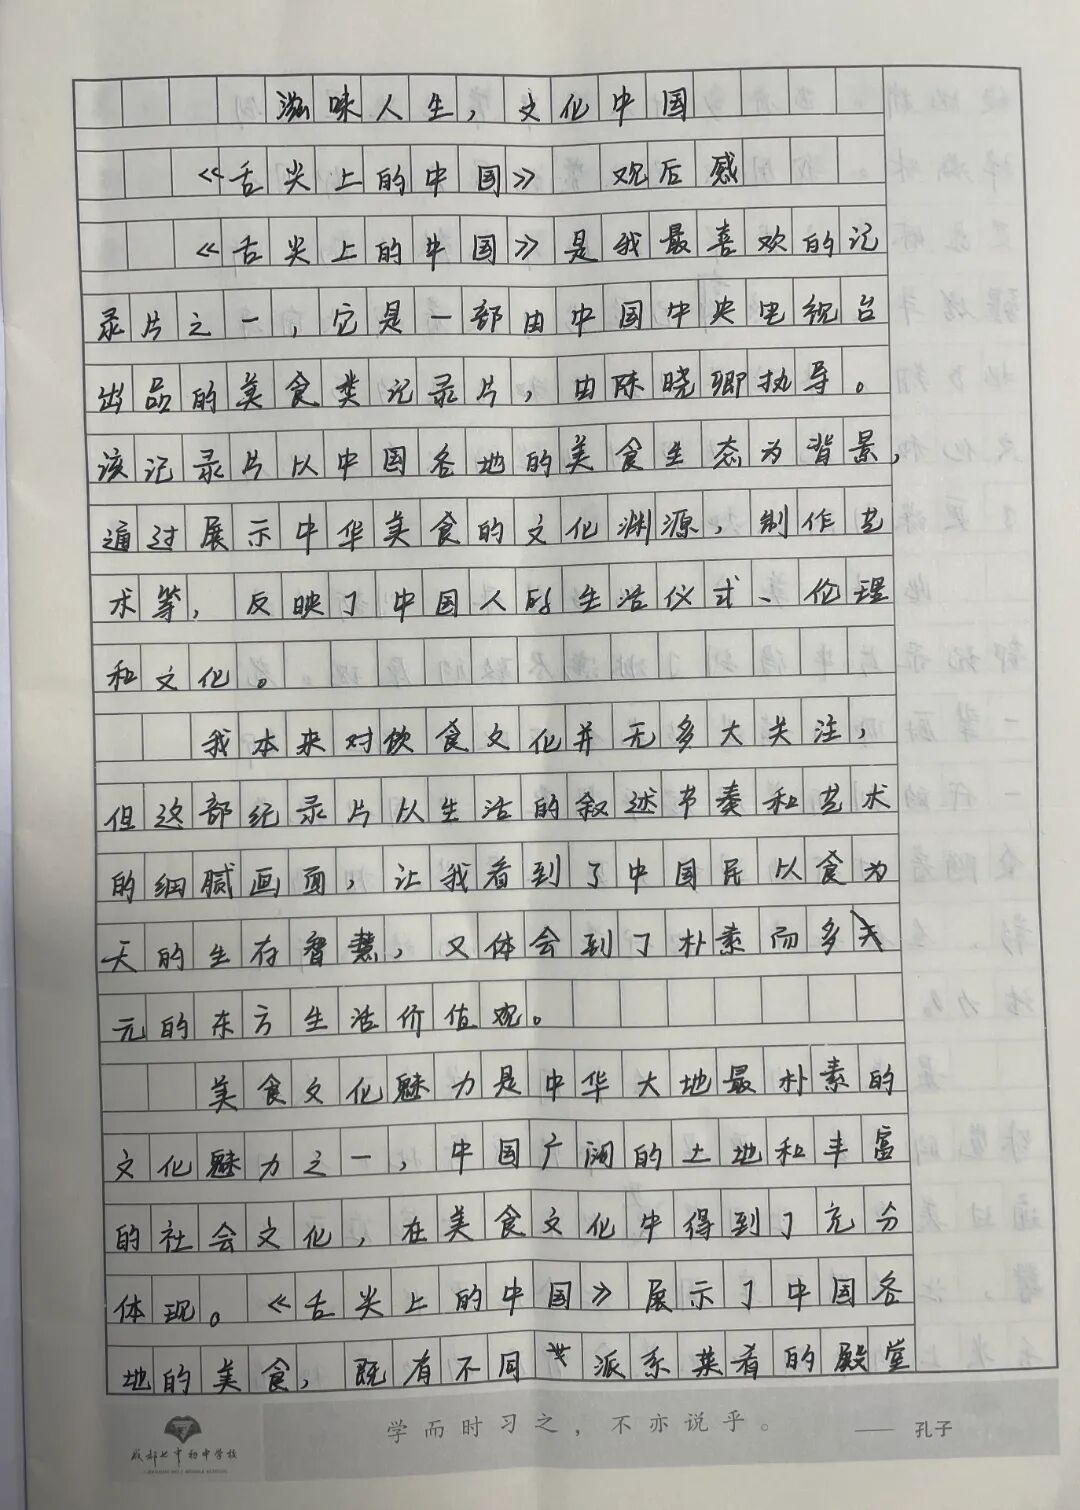 滋味人生，文化中国
《舌尖上的中国》 观后感
《舌尖上的中国》是我最喜欢的记
录片之一，它是一部由中国中央电视台
出品的美食类记录片，由陈晓卿执导。
该记录片以中国各地的美食生态为背景，
通过展示中华美食的文化渊源，制作艺
术等，反映了中国人的生活仪式、伦理
和文化。
我本来对饮食文化并无多大关注，
但这部纪录片以生活的叙述节奏和艺术
的细腻画面，让我看到了中国民以食为
天的生存智慧，又体会到了朴素而多
元的东方生活价值观。
美食文化魅力是中华大地最朴素的
文化魅力之一，中国广阔的土地和丰富
的社会文化，在美食文化中得到了充分
体现。《舌尖上的中国》展示了中国各
地的美食，既有不同 派系菜肴的殿堂
学而时习之，不亦说乎。 —— 孔子
成都七中初中学校